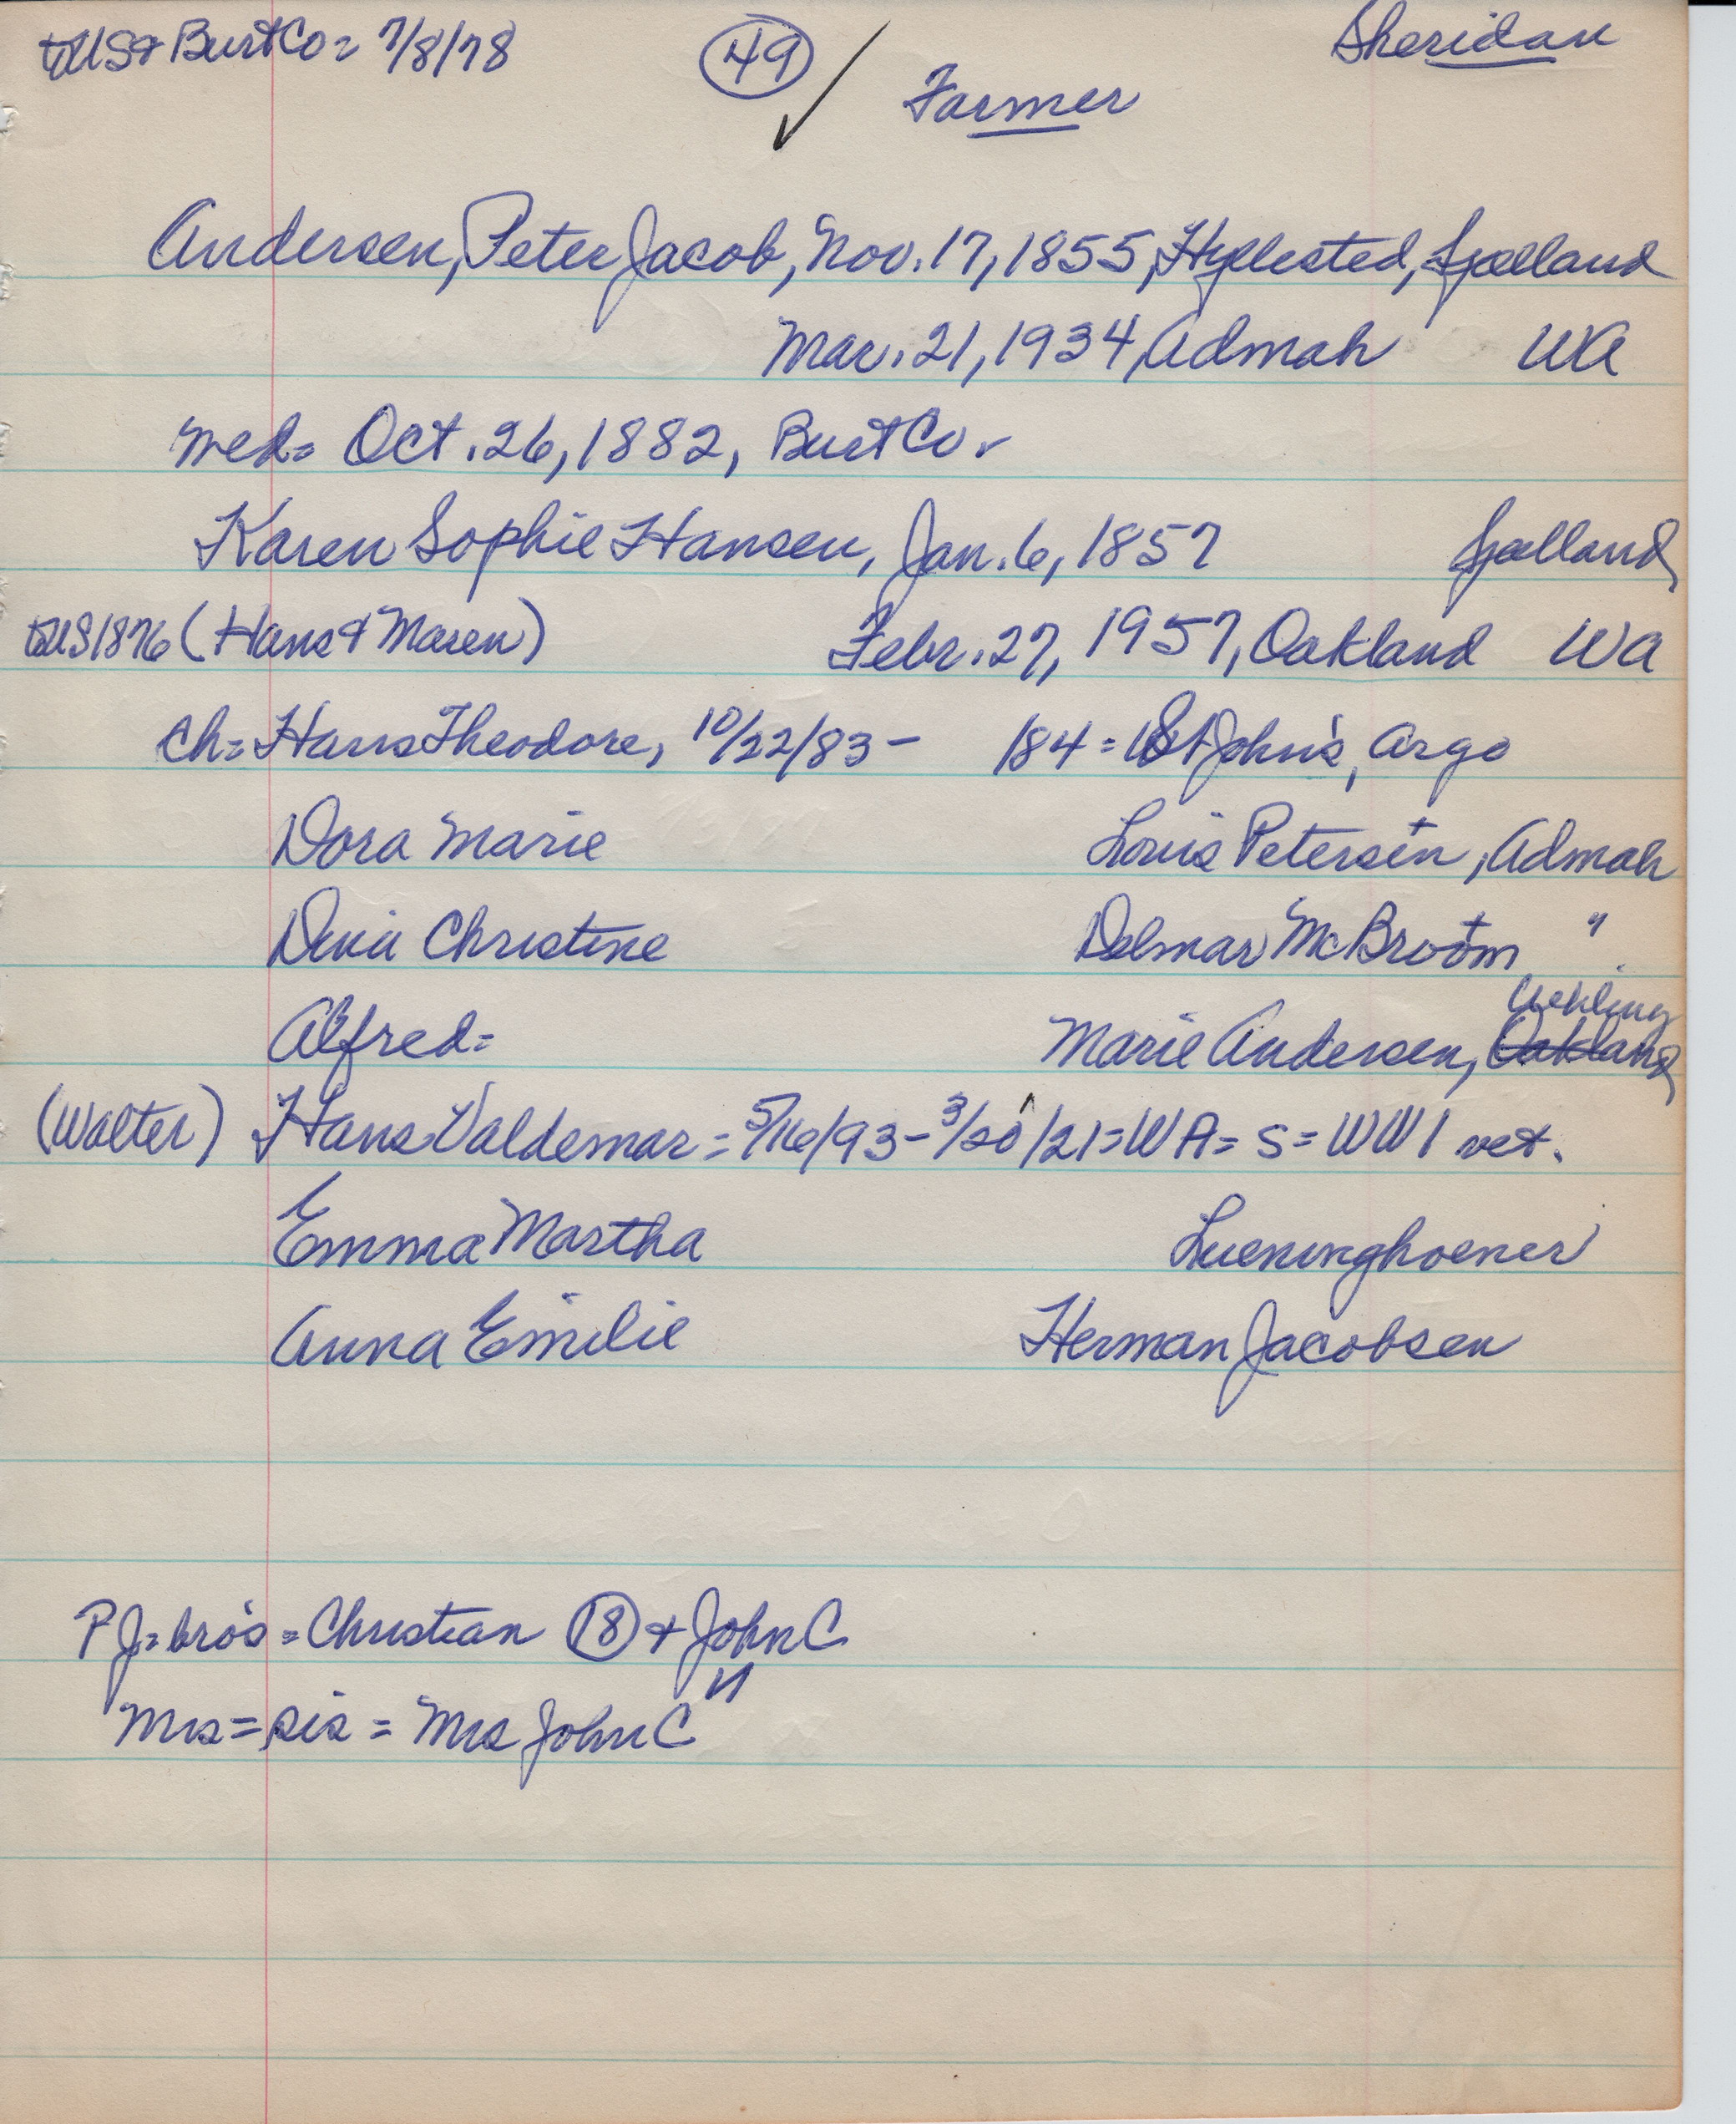 tUS+ Burt Co = 7/8/78 (49) ✓ Sheridan
Farmer
Andersen, Peter Jacob, Nov. 17, 1855, Hyllested, Sjælland
Mar. 21, 1934, Admah WA
wed = Oct. 26, 1882, Burt Co.
Karen Sophie Hansen, Jan. 6, 1857 Sjælland
tUS 1876 (Hans + Maren) Febr. 27, 1957, Oakland WA
ch = Hans Theodore, 10/22/83 - 184 = St John's, Argo
Dora Marie Louis Petersen, Admah
Dina Christine Delmar McBroom "
Uehling
Alfred = Marie Andersen, Oakland
(Walter) Hans Valdemar = 5/16/93 - 3/20/21 = WA = S = WW I vet.
Emma Martha Lueninghoener
Anna Emilie Herman Jacobsen
PJ = bro's = Christian (18) + John C
"
Mrs = sis = Mrs John C